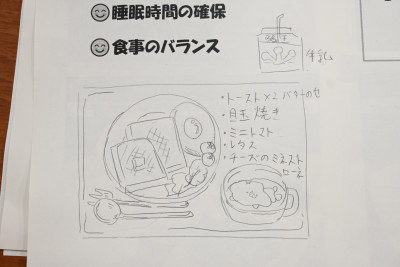 睡眠時間の確保
食事のバランス
牛乳
・トースト×2 バターのせ
・目玉焼き
・ミニトマト
・レタス
・チーズのミネスト
ローネ